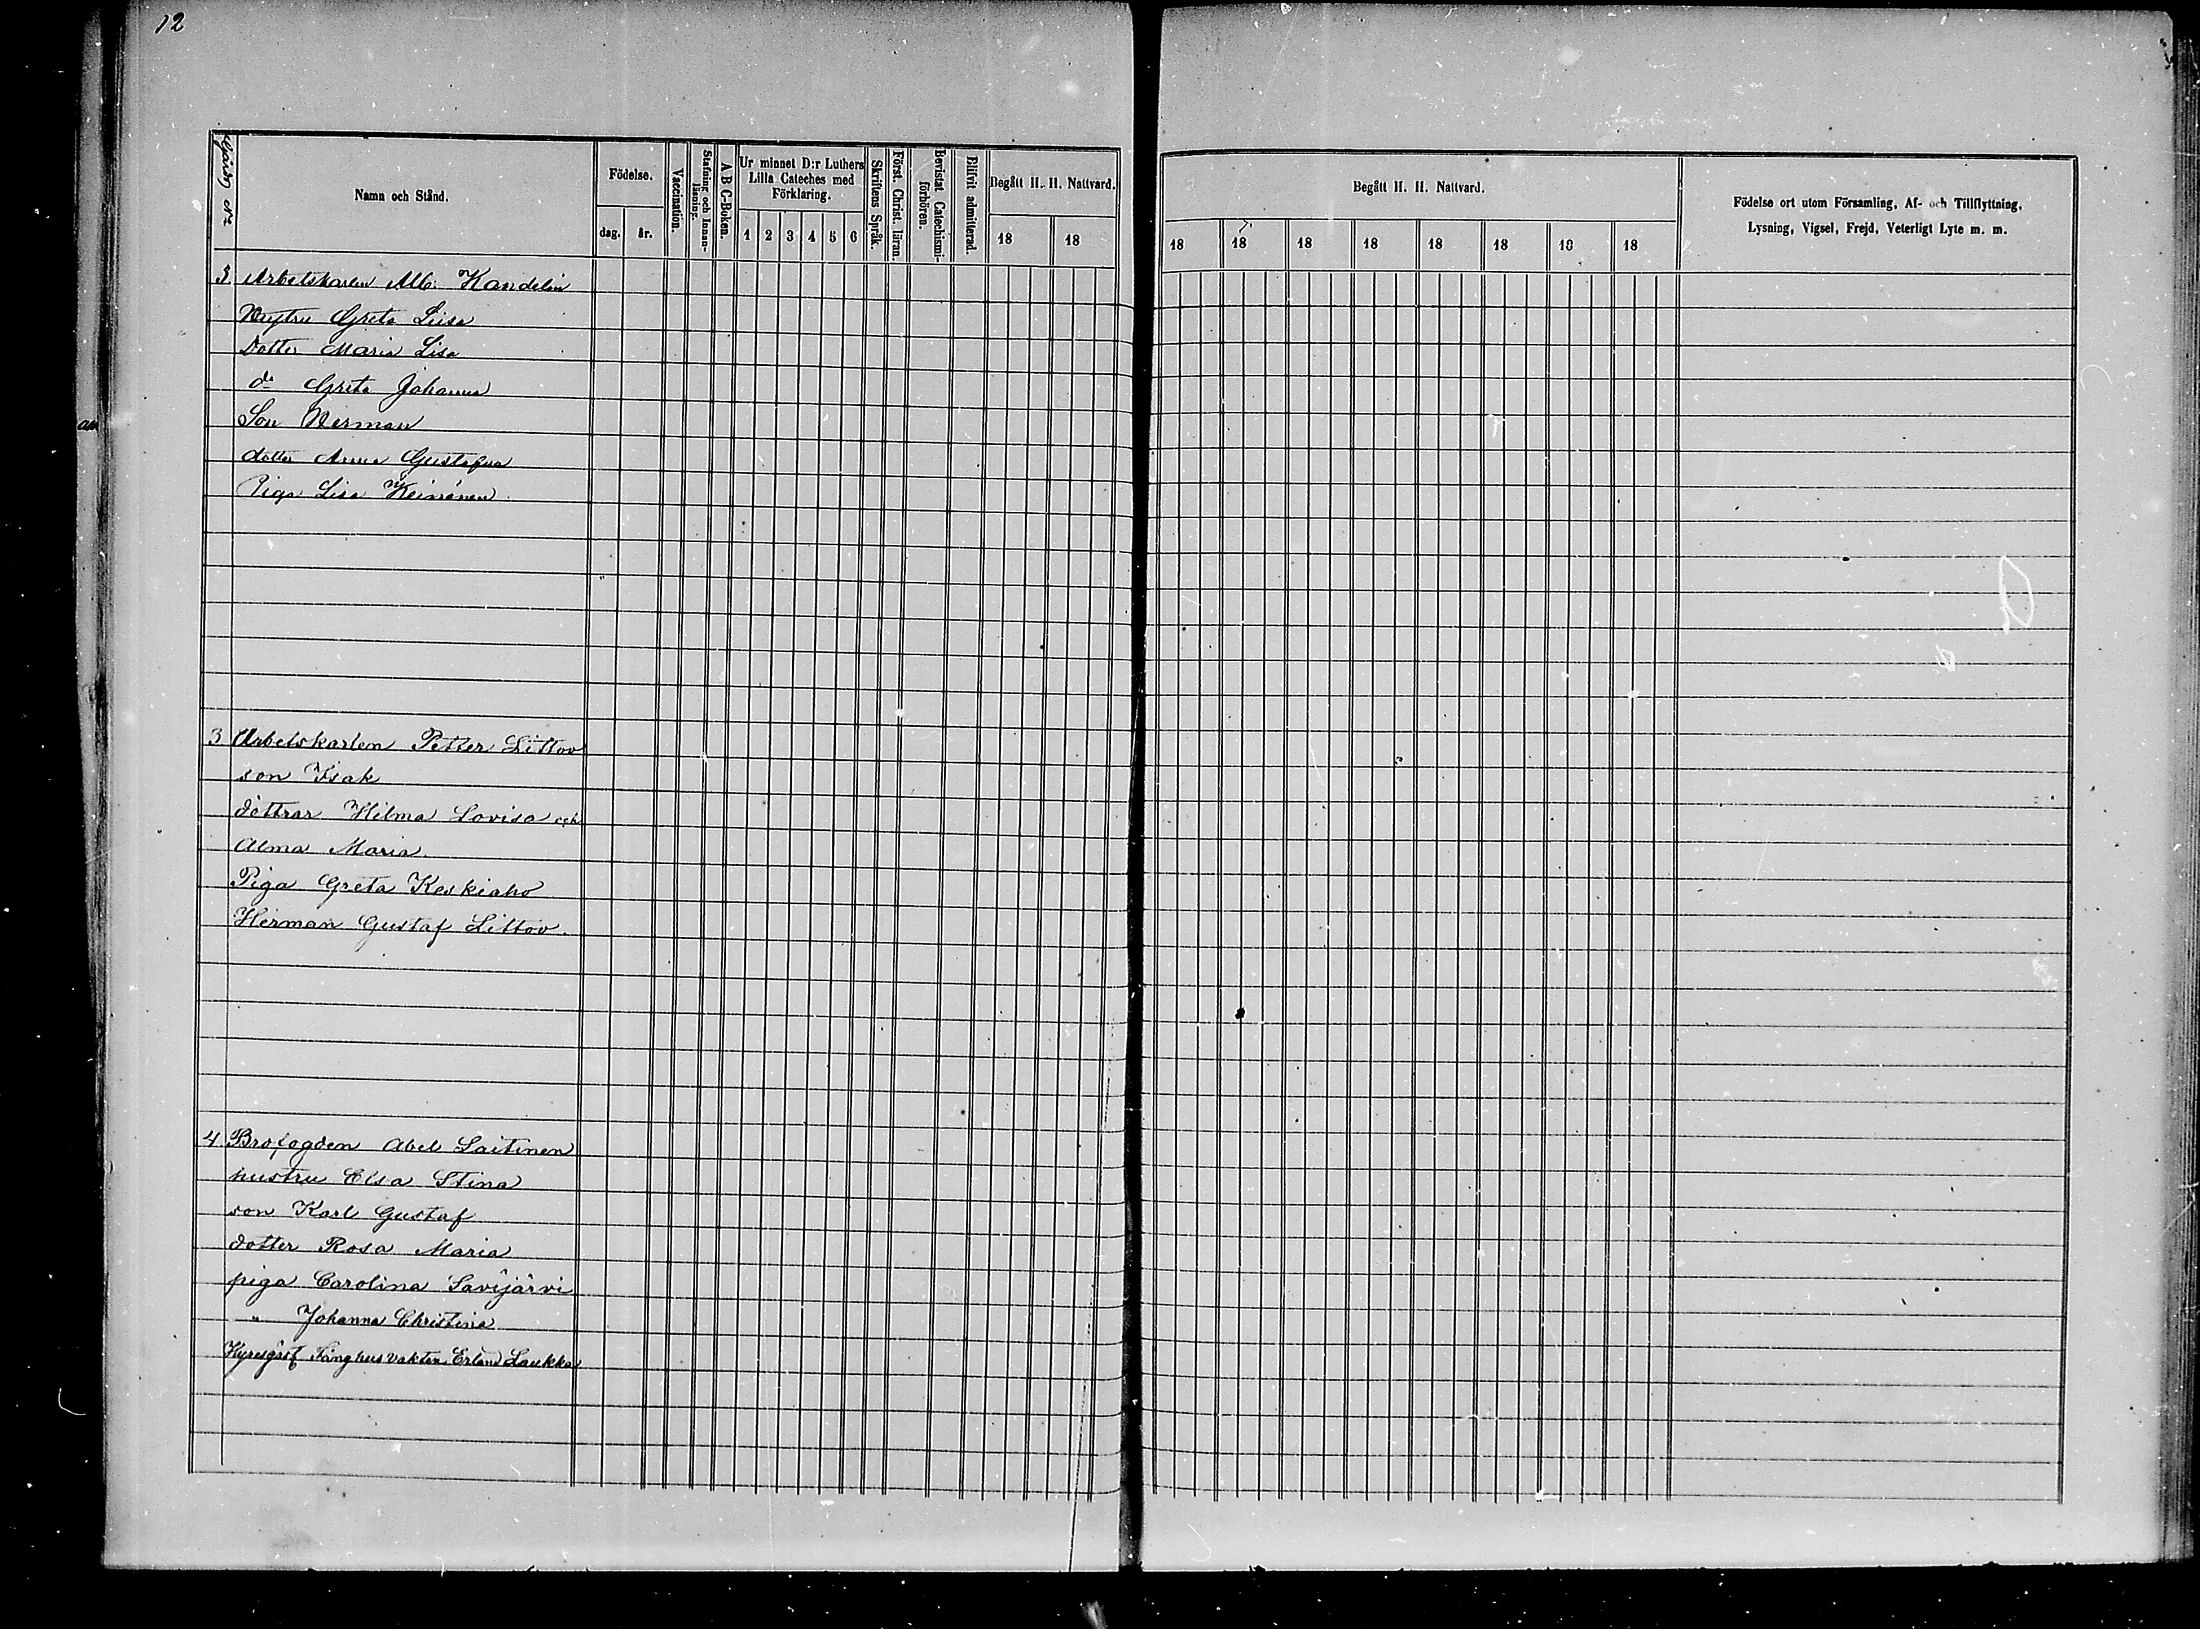 12
Gårds No
Namn och Stånd.
Födelse.
dag.
år.
Vaccination.
Stafning och Innan-
läsning.
A B C-Boken.
Ur minnet D:r Luthers
Lilla Cateches med
Förklaring.
1 2 3 4 5 6
Skriftens Språk.
Först. Christ. läran.
Bevistat Catechismi-
förhören.
Blifvit admitterad.
Begått H. H. Nattvard.
18 18
Begått H. H. Nattvard.
18 18 18 18 18 18 18 18
Födelse ort utom Församling, Af- och Tillflyttning,
Lysning, Vigsel, Frejd, Veterligt Lyte m. m.
3. Arbetskarlen Alb: Kandelin
Hustru Greta Lisa
Dotter Maria Lisa
do Greta Johanna
Son Herman
dotter Anna Gustafva
Piga Lisa Heinänen
3 Arbetskarlen Petter Littov
son Isak
döttrar Hilma Lovisa och
Alma Maria.
Piga Greta Keskiaho
Herman Gustaf Littov.
4. Brofogden Abel Laitinen
hustru Elsa Stina
son Karl Gustaf
dotter Rosa Maria
piga Carolina Savijärvi
" Johanna Christina
Hyresgäst Fånghusvakten Erland Laukka